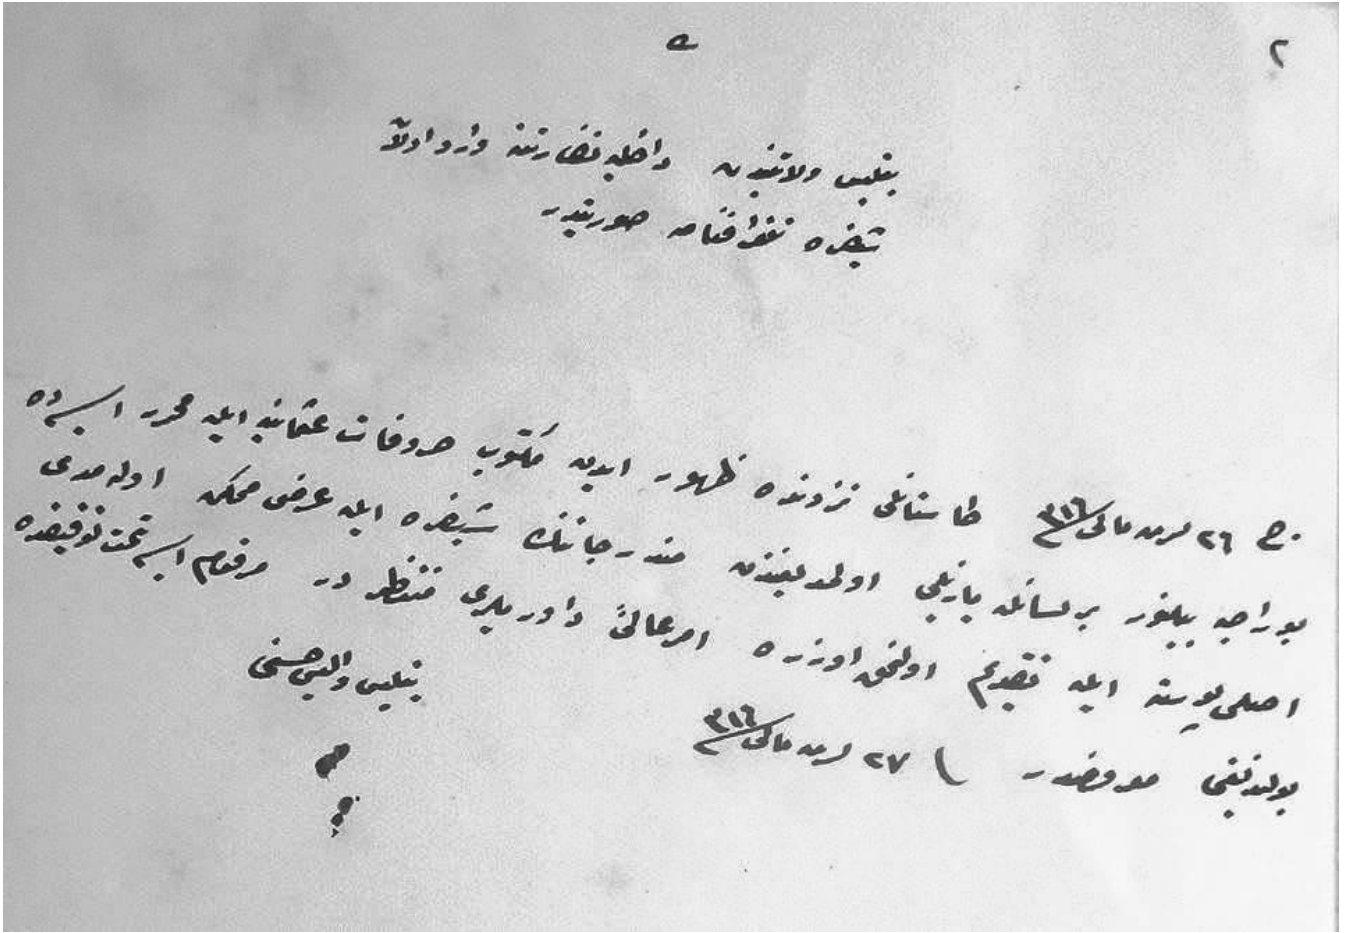 ٢
بتليس ولايتندن داخليه نظارتنه وارد اولان
شيفره تلغرافنامه صورتيدر
ج ٢٦ مالى ٣١٦ نزدنده ظهور ايدن مكتوب حروفات عثمانيه ايله محرر ايسه ده
بوراجه بيلنور بر لسانله يازلمى اولمديغندن مندرجاتنك شيفره ايله عرضى ممكن اوله مدى
اصلى پوسته ايله تقديم اولنمق اوزره امر عالئ داوريلرى منتظر در مرقوم ايسه تحت توقيفده
بولنديغى معروضدر ٢٧ مالى ٣١٦
بتليس واليسى حسنى